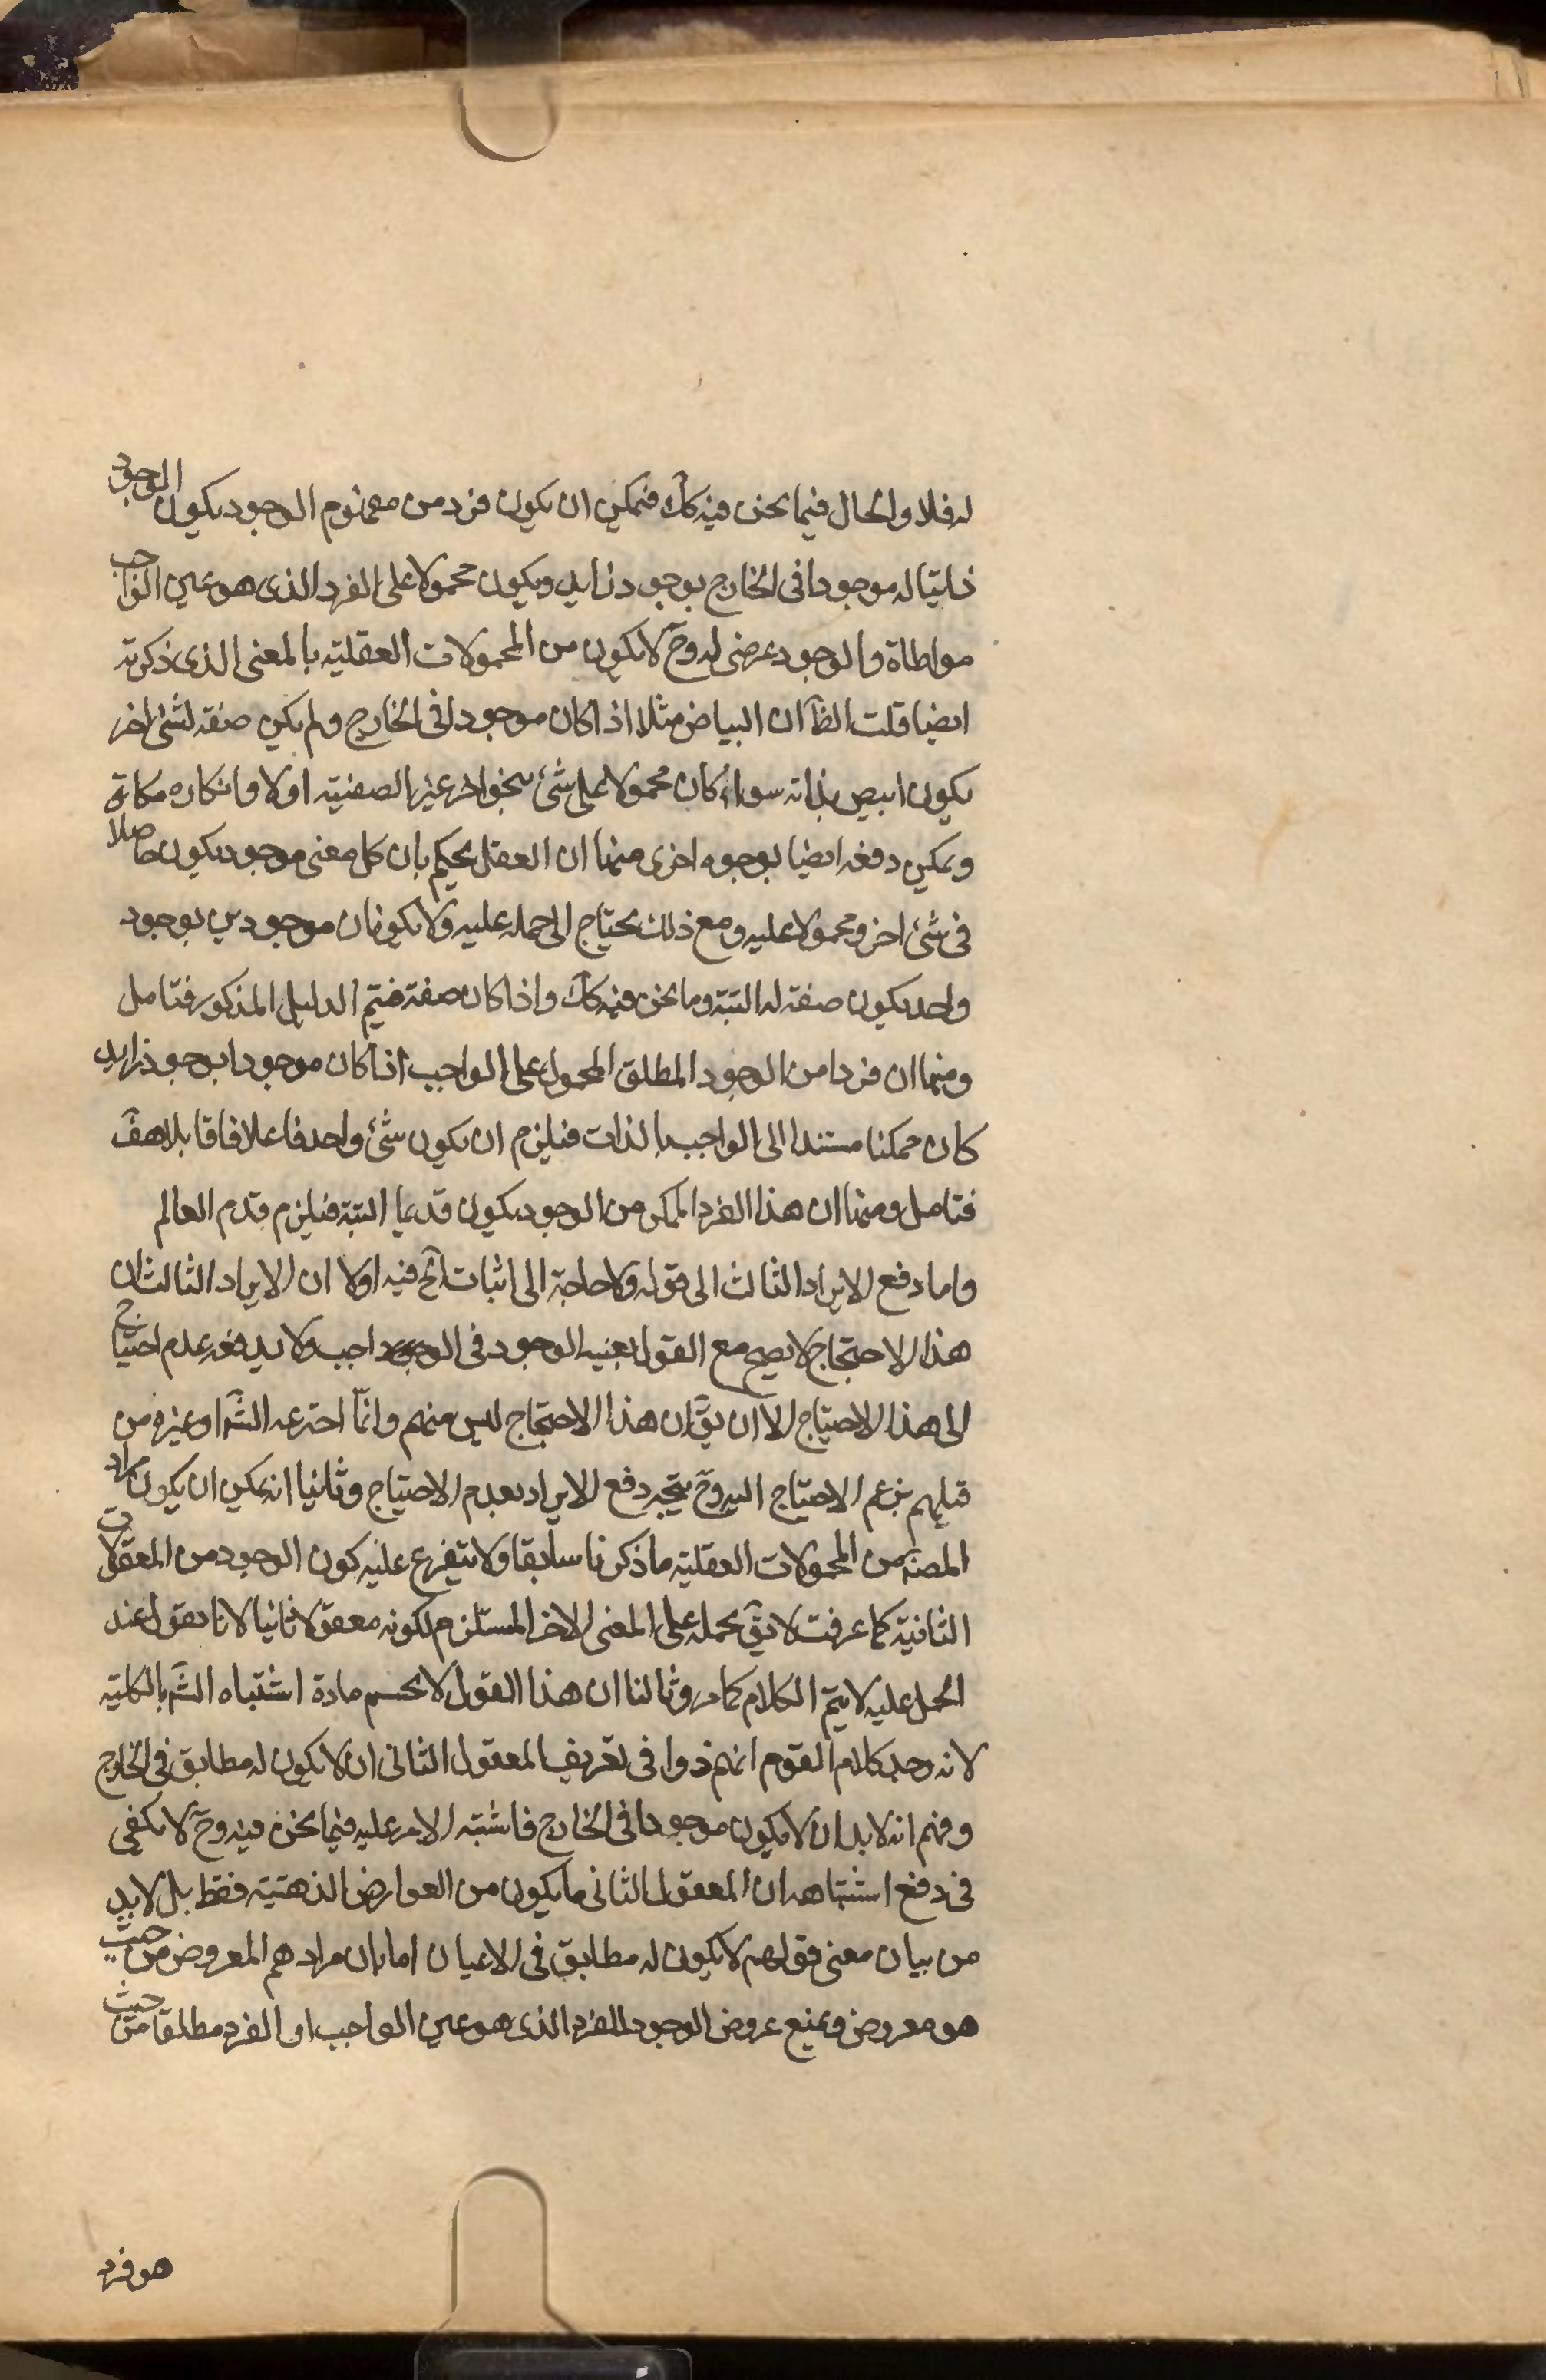 له فلا والحال فيما نحن فيه كك فيمكن ان يكون فرد من مفهوم الوجود يكون الوجود
ذاتيا له موجودا فى الخارج بوجود زايد ويكون محمولا على الفرد الذى هو عين الواجب
مواطاة والوجود عرضى له وح لا يكون من المحمولات العقلية بالمعنى الذى ذكرته
ايضا قلت الظ ان البياض مثلا اذا كان موجودا فى الخارج ولم يكن صفة لشئ اخر
يكون ابيض بذاته سواء كان محمولا على شئ بنحو اخر غير الصفتية اولا وانكاره مكابرة
ويمكن دفعه ايضا بوجوه اخرى منها ان العقل يحكم بان كل معنى موجود يكون حاصلا
فى شئ اخر ومحمولا عليه ومع ذلك يحتاج الى حمله عليه ولا يكونان موجودين بوجود
واحد يكون صفة له البتة وما نحن فيه كك واذا كان صفة فيتم الدليل المذكور فتامل
ومنها ان فردا من الوجود المطلق المحمول على الواجب اذا كان موجودا بوجود زايد
كان ممكنا مستندا الى الواجب بالذات فيلزم ان يكون شئ واحد فاعلا وقابلا هف
فتامل ومنها ان هذا الفرد الممكن من الوجود يكون قديما البتة فيلزم قدم العالم
واما دفع الايراد الثالث الى قوله ولا حاجة الى اثبات الخ ففيه اولا ان الايراد الثالث ان
هذا الاحتجاج لا يصح مع القول بعينية الوجود فى الواجب ولا يدفعه عدم احتياج
الى هذا الاحتياج الا ان يق ان هذا الاحتجاج ليس منهم وانما اخترعه الش او غيره من
قبلهم بزعم الاحتياج اليه وح يتجه دفع الايراد بعدم الاحتياج وثانيا انه يمكن ان يكون مراد
المصنف من المحمولات العقلية ما ذكرنا سابقا ولا يتفرع عليه كون الوجود من المعقولات
الثانية كما عرفت لا يق نحمله على المعنى الاخر المستلزم لكونه معقولا ثانيا لانا نقول عند
الحمل عليه لا يتم الكلام كما مر وثالثا ان هذا القول لا يحسم مادة اشتباه الش بالكلية
لانه وجد كلام القوم انهم ذكروا فى تعريف المعقول الثانى ان لا يكون له مطابق فى الخارج
وفهم انه لابد ان لا يكون موجودا فى الخارج فاشتبه الامر عليه فيما نحن فيه وح لا يكفى
فى دفع اشتباهه ان المعقول الثانى ما يكون من العوارض الذهنية فقط بل لابد
من بيان معنى قولهم لا يكون له مطابق فى الاعيان اما بان مرادهم المعروض من حيث
هو معروض ويمنع عروض الوجود للفرد الذى هو عين الواجب او الفرد مطلقا من حيث
هو فرد